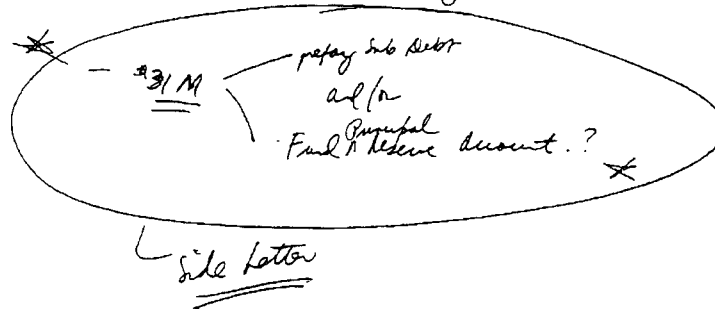 - $31 M
prepay Sub Debt
and/or
Principal
Fund ^ Reserve Account.?
Side Letter